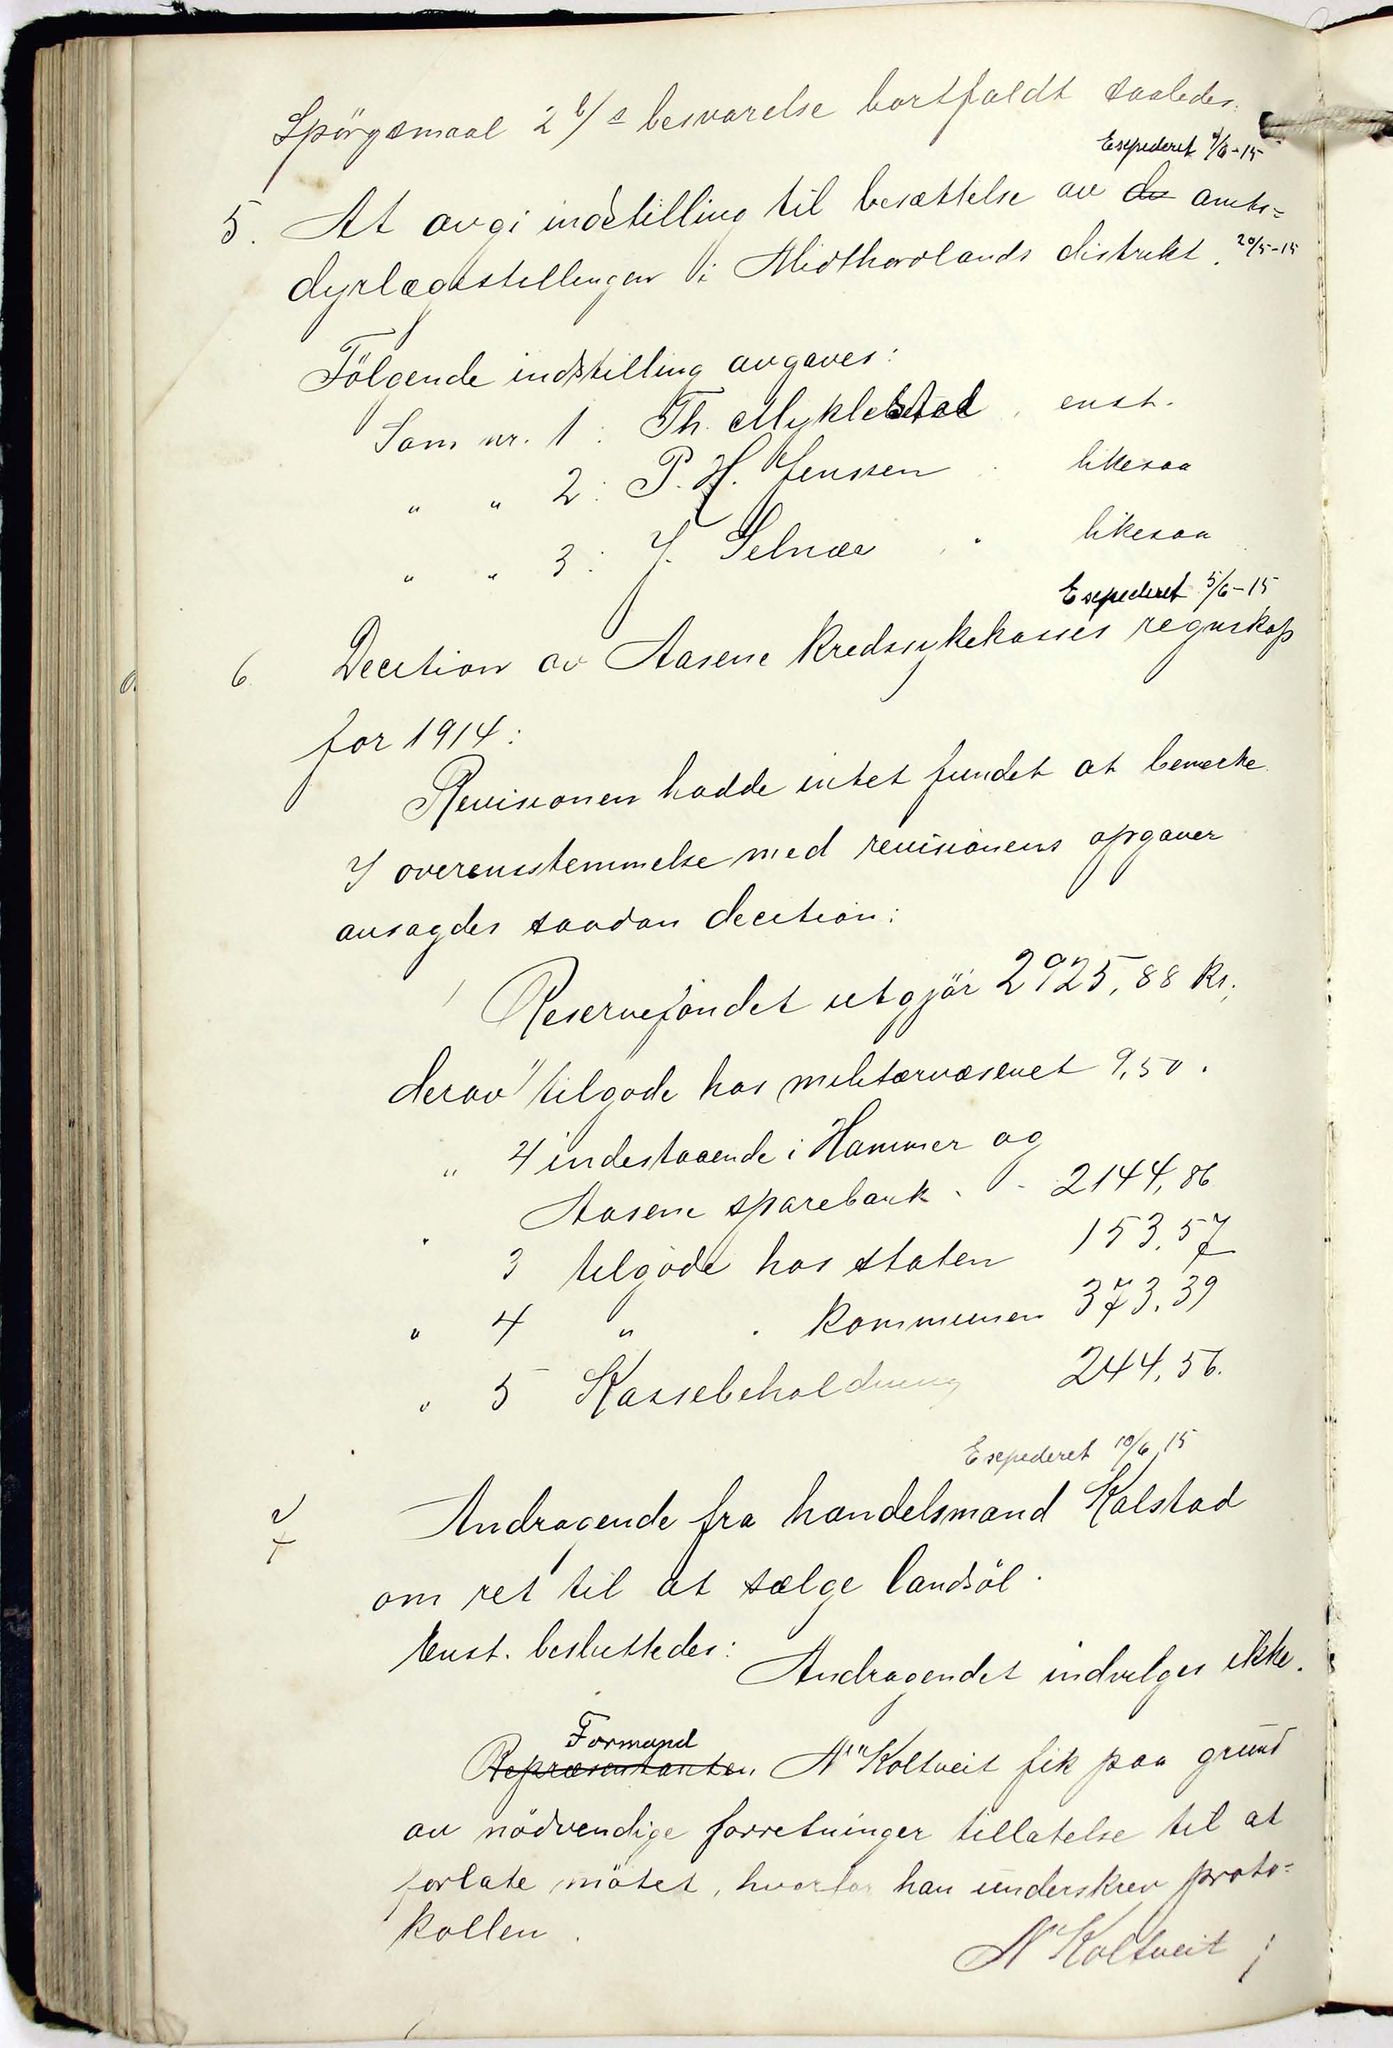 Spörgsmaal 2 b/s besvarelse bortfaldt saaledes.
Expederet 4/6-15
5. At avgi indstilling til besættelse av de amts-
dyrlægestillingen i Midthordlands distrikt. 20/5-15
Følgende indstilling avgaves:
Som nr. 1: Th. Myklebstad, enst.
" " 2: P. H. Jenssen. likesaa
" " 3: J. Selnæs, " likesaa
Expederet 5/6-15
6. Decition av Aasene Kredssykekasses regnskap
for 1914:
Revisionen hadde intet fundet at bemerke.
I overensstemmelse med revisionens opgaver
ansagdes saadan decition:
Reservefondet utgjör 2925,88 kr.;
derav 1/ tilgode hos militærvæsenet 9,50.
" 2/ indestaaende i Hammer og
Aasene sparebank. - 2144,86
" 3 tilgode hos staten 153,57
" 4 " . kommunen 373,39
" 5 Kassebeholdning 244,56.
Expederet 10/6 15
7 Andragende fra handelsmand Kalstad
om ret til at sælge landsöl.
Enst. besluttedes: Andragendet indvilges ikke.
Formand
Repræsentanten N Koltveit fik paa grund
av nödvendige forretninger tillatelse til at
forlate mötet, hvorfor han underskrev proto-
kollen.
N Koltveit